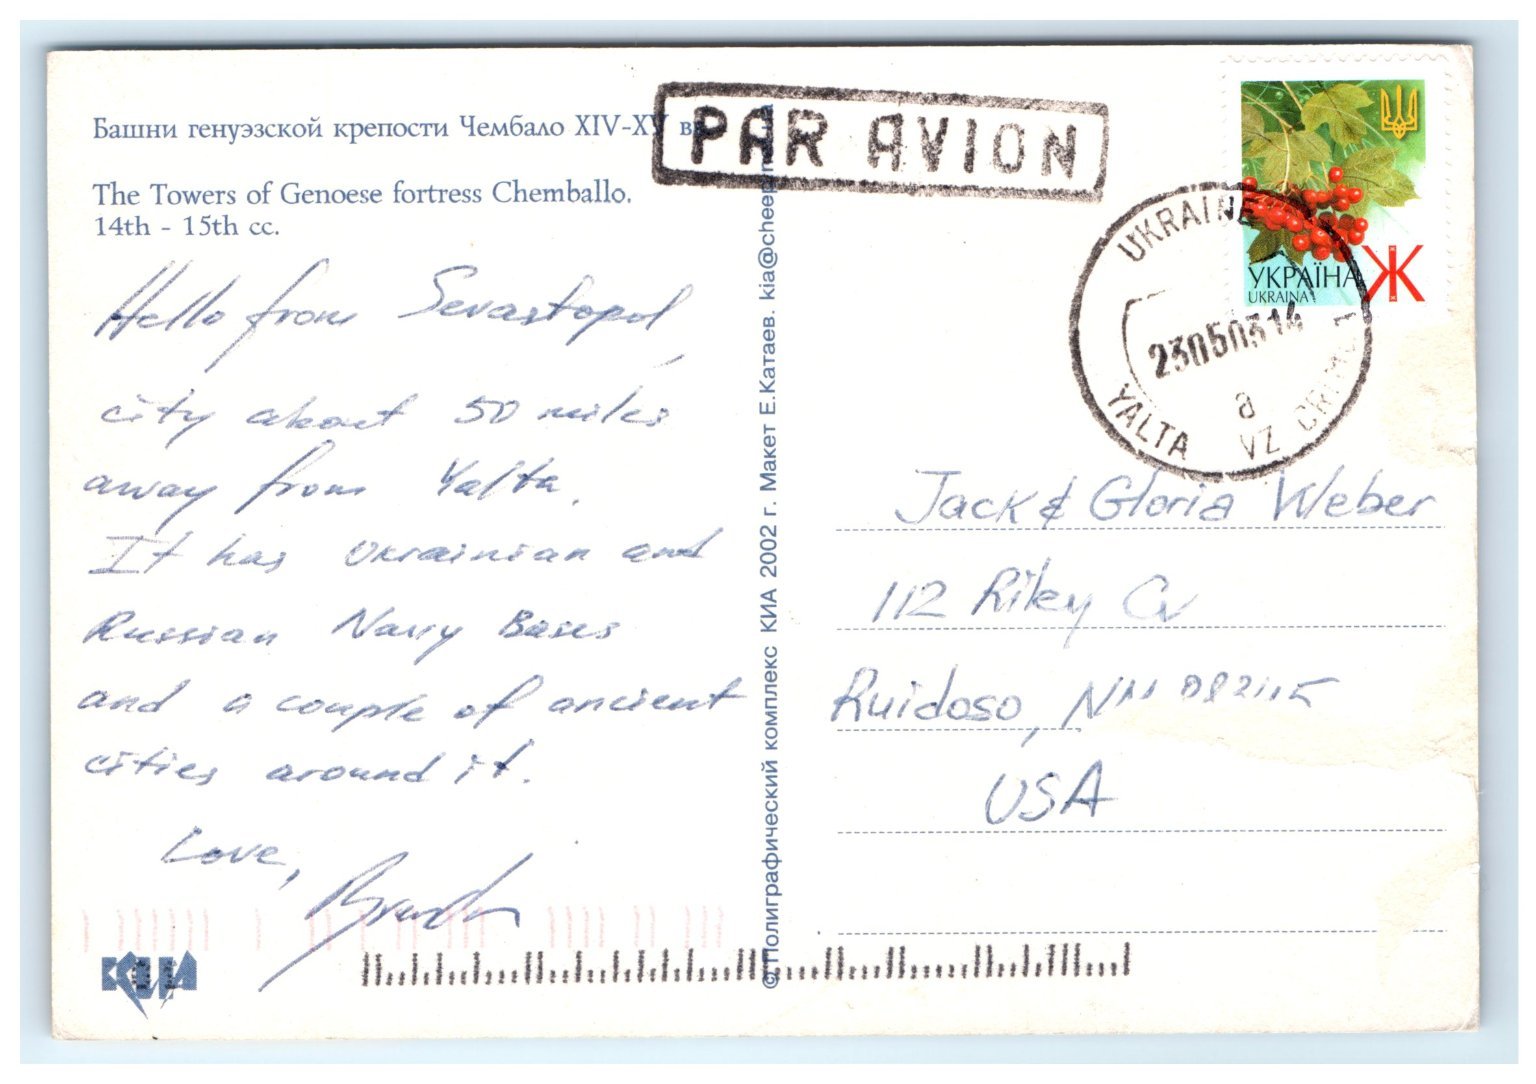 Башни генуэзской крепости Чембало XIV-XV вв.
The Towers of Genoese fortress Chemballo.
14th - 15th cc.
PAR AVION
УКРАЇНА
UKRAINA
Ж
UKRAINE
230503 14
a
YALTA VZ CRIMEA
Hello from Sevastopol
city about 50 miles
away from Yalta.
It has Ukrainian and
Russian Navy Bases
and a couple of ancient
cities around it.
Love,
© Полиграфический комплекс КИА 2002 г. Макет Е.Катаев. kia@cheep
Jack & Gloria Weber
112 Riley Cv
Ruidoso, NM
USA
КИА